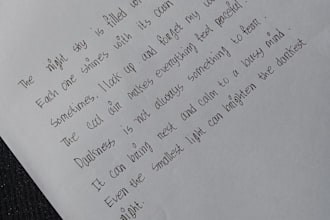 The night sky is filled w
Each one shines with its own
Sometimes, I look up and forget my wo
The cool air makes everything feel peaceful.
Darkness is not always something to fear.
It can bring rest and calm to a busy mind.
Even the smallest light can brighten the darkest
night.